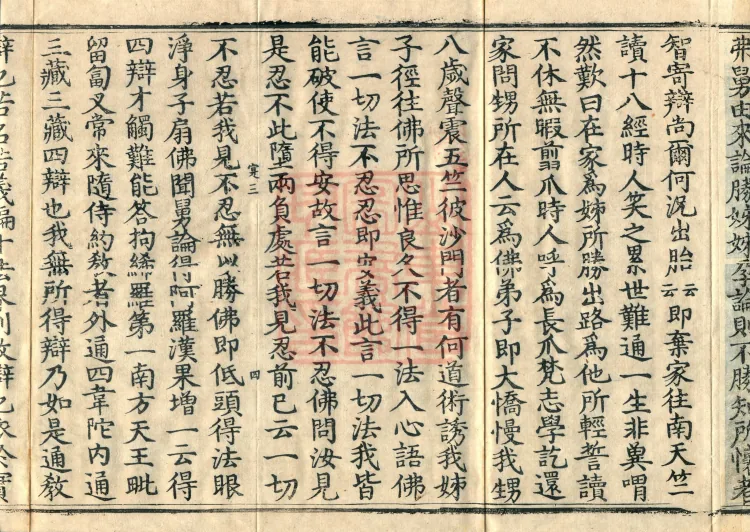 弗舅由來論勝姊姊孕論則不勝知所懷者
智寄辯尚爾何況出胎云云即棄家往南天竺
讀十八經時人笑之累世難通一生非冀喟
然歎曰在家爲姊所勝出路爲他所輕誓讀
不休無暇翦爪時人呼爲長爪梵志學訖還
家問甥所在人云爲佛弟子即大憍慢我甥
八歲聲震五竺彼沙門者有何道術誘我姊
子徑往佛所思惟良久不得一法入心語佛
言一切法不忍忍即安義此言一切法我皆
能破使不得安故言一切法不忍佛問汝見
是忍不此墮兩負處若我見忍前已云一切
寔三
四
不忍若我見不忍無以勝佛即低頭得法眼
淨身子扇佛聞舅論得阿羅漢果增一云得
四辯才觸難能答拘絺羅第一南方天王毗
留匐叉常來隨侍約教者外通四韋陀內通
三藏三藏四辯也我無所得辯乃如是通教
辯也若名若義徧十法界別教辯也